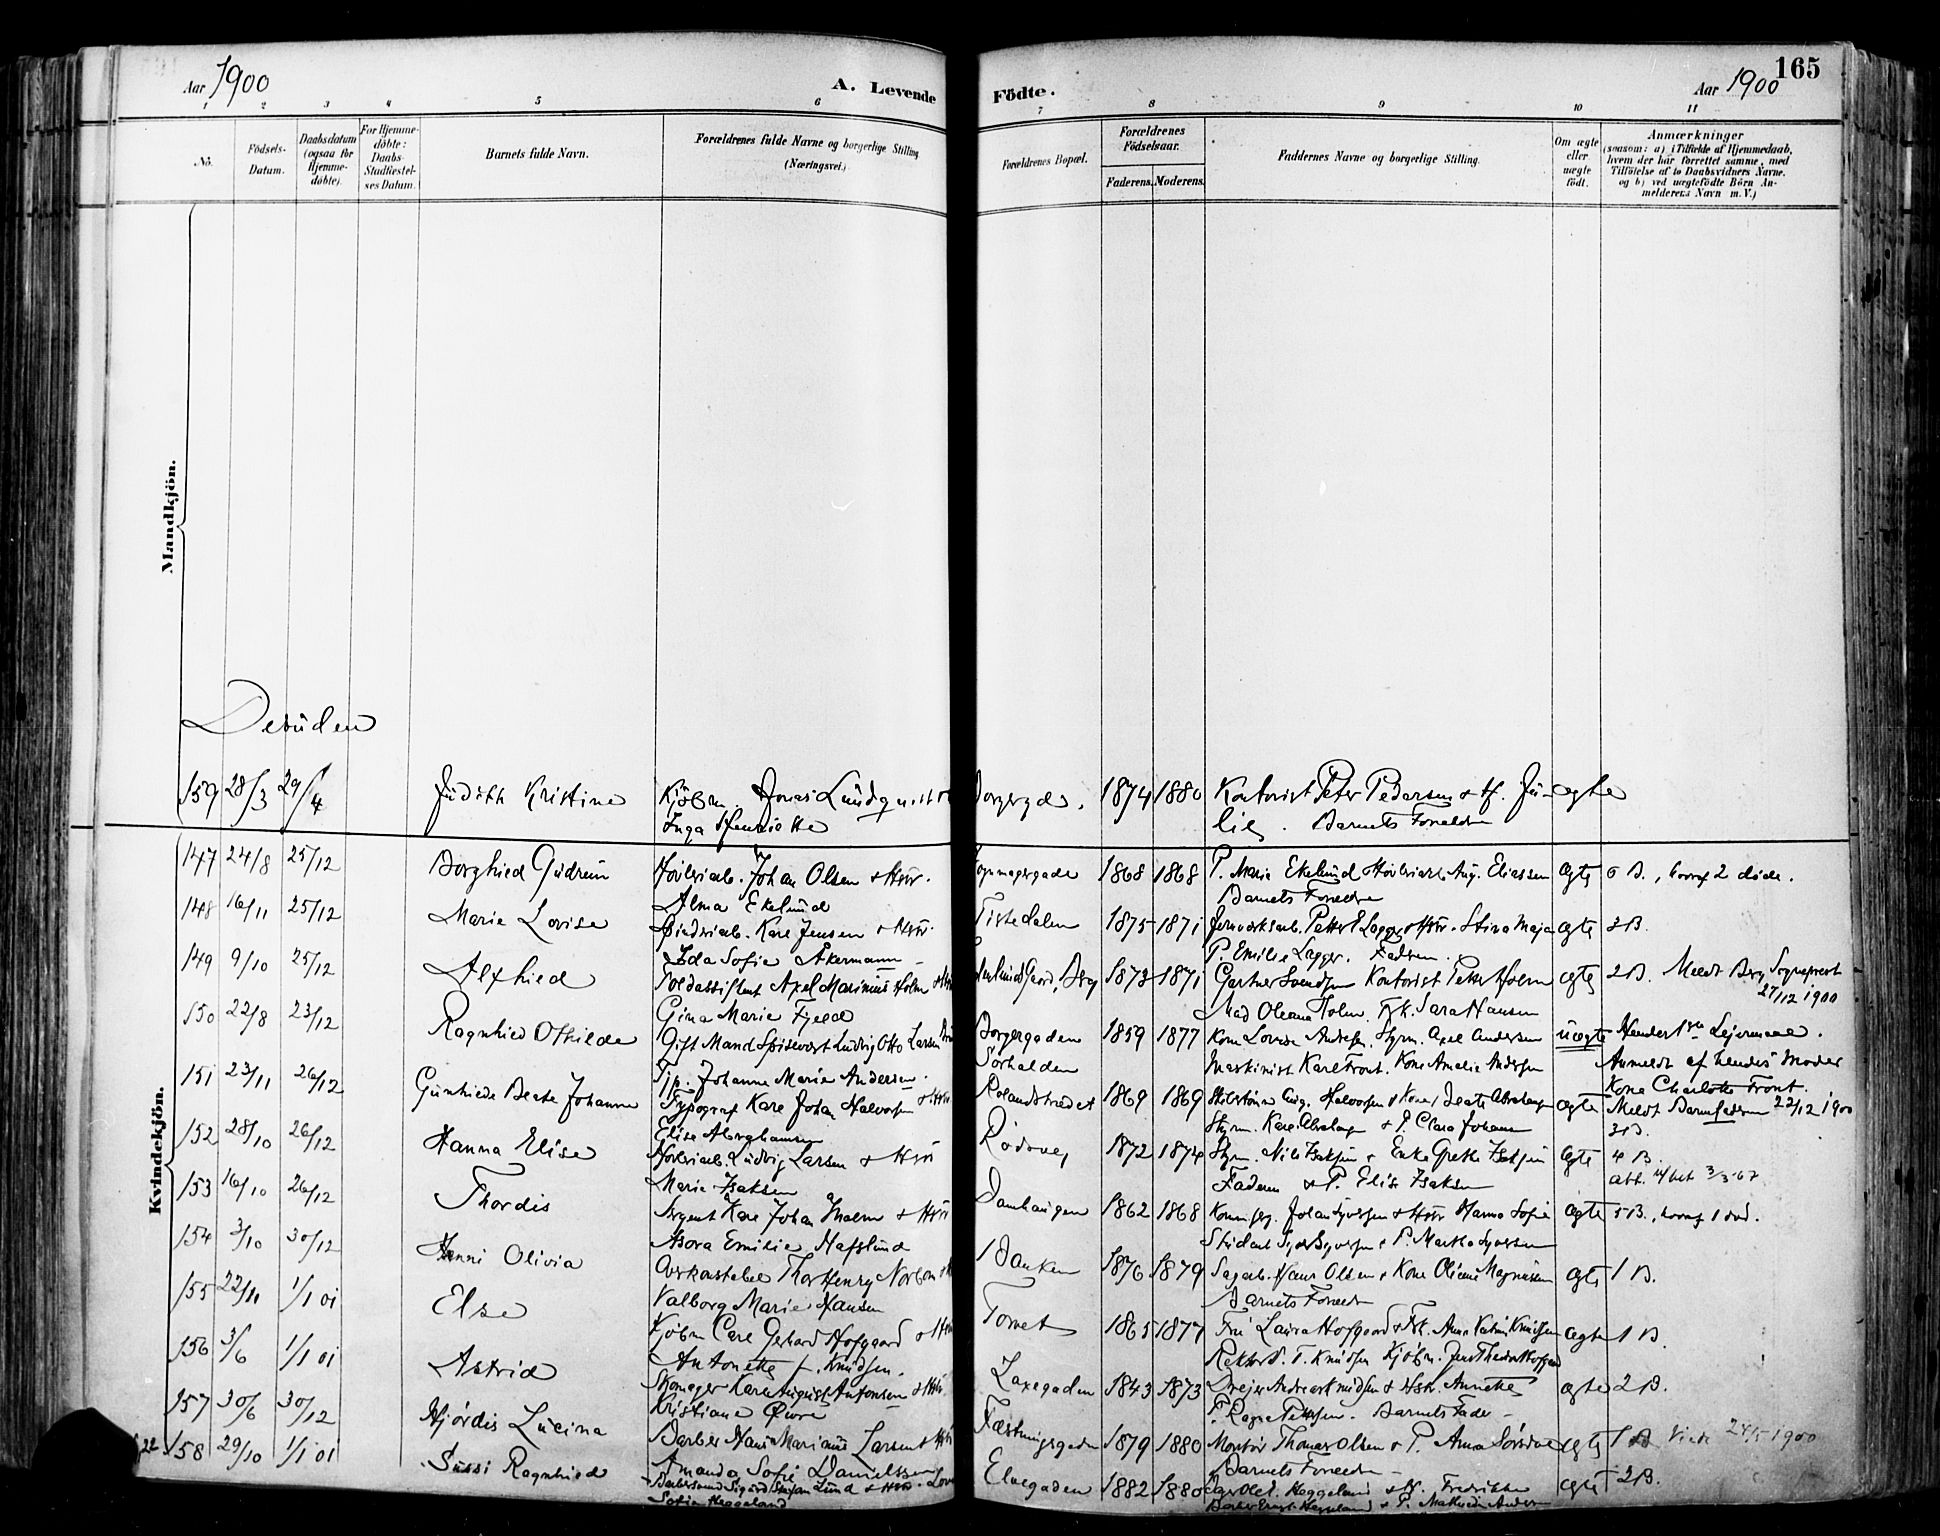 165
Aar 1900
A. Levende
Födte.
Aar 1900
1 2 3 4 5 6 7 8 9 10 11
No.
Födsels-
Datum.
Daabsdatum
(ogsaa for
Hjemme-
döbte).
For Hjemme-
döbte:
Daabs-
Stadfæstel-
ses Datum.
Barnets fulde Navn.
Forældrenes fulde Navne og borgerlige Stilling
(Næringsvei.)
Forældrenes Bopæl.
Forældrenes
Födselsaar.
Faderens. Moderens.
Faddernes Navne og borgerlige Stilling.
Om ægte
eller
uægte
födt.
Anmærkninger
(saasom: a) i Tilfælde af Hjemmedaab,
hvem der har forrettet samme, med
Tilföielse af to Daabsvidners Navne,
og b) ved uægtefödte Börn An-
melderens Navn m. V.)
Mandkjön.
Desuden
159 28/3 29/4 Judith Kristine Kjöbm. Jonas Lundquist Borgergd. 1874 1880 Kontorist Peter Pedersen & H. Ju- ægte
Inga Henriette lie. Barnets Forældre
Kvindekjön.
147 24/8 25/12 Borghild Gudrun Hövleriarb. Johan Olsen & Hstr. 1868 1868 P. Marie Ekelund Hövleriarb. Aug. Eliassen ægte 5 B., hvoraf 2 døde.
Alma Ekelund Barnets Forældre
148 16/11 25/12 Marie Lovise Karl Jensen & Hstr. Tistedalen 1875 1871 Petter E Lagger & Hstr. Stina Maja ægte 3 B.
Ida Sofie Akermann P. Emilie Lagger. Faderen.
149 9/10 25/12 Alfhild Toldassistent Axel Marinius Holm & Hstr Berg 1873 1871 Gartner Svendsen Kontorist Peter Holm ægte 2 B. Meldt Berg Sogneprest
27/12 1900
Gina Marie Fjeld Mad Oleana Holm. Frk. Sara Hansen
150 22/8 23/12 Ragnhild Othilde Gift Mand Spisevert Ludvig Otto Larsen Borgergaden 1859 1877 Kone Lovise Andersen, Styrm. Axel Andersen uægte Hendes 1ste Leiermaal.
Tjp. Johanne Marie Andersen. Sørhalden Maskinist Karl Front. Kone Amalie Andersen Anmeldt af hendes Moder
Kone Charlotte Front.
151 23/11 26/12 Gunhild Beate Johanne Typograf Karl Johan Halvorsen & Hstr Rolandstrædet 1869 1869 Halvorsen & Kone, Beate Abrahamsen ægte Meldt Barnefaderen 22/12 1900
Elise Abrahamsen Styrm. Karl Abrahamsen & P. Clara Johansen 3 B.
152 28/10 26/12 Hanna Elise Hövleriarb. Ludvig Larsen & Hstr Rødsvej 1872 1874 Styrm. Nils Isaksen & Enke Grethe Isaksen ægte 4 B.
Marie Isaksen Faderen & P. Elise Isaksen
153 16/10 26/12 Thordis Sergent Karl Johan Malm & Hstr Damhaugen 1862 1868 Johan Syversen & Hstr Hanna Sofie ægte 5 B., hvoraf 1 død.
Asora Emilie Hafslund Student Syversen & P. Martha Syversen
154 3/10 30/12 Henni Olivia Overkonstabel Thor Henry Norbom Banken 1876 1879 Sagarb. Hans Olsen & Kone Oliane Magnusen ægte 1 B.
Valborg Marie Hansen Barnets Forældre
155 22/11 1/1 01 Else Kjöbm Carl Gerhard Hofgaard & Hstr Torvet 1865 1877 Fru Laura Hofgaard & Frk. Anna Katrine Knudsen ægte 1 B.
Antonette F. Knudsen. Rektor S. T. Knudsen Kjöbm. Jens Theodor Hofgaard
156 3/6 1/1 01 Astrid Skomager Karl August Antonsen & Hstr Laxegaden 1843 1873 Dreier Andreas Knudsen & Hstr. Annette ægte 2 B.
Kristiane Qvire P. Ragna Pettersen. Barnets Fader
157 30/6 30/12 Hjördis Lucina Barber Hans Marinius Larsen & Hstr Fæstningsgaden 1879 1880 Montör Thomas Olsen & P. Anna Sørsdal ægte 1 B Viede 24/5 1900
Amanda Sofie Danielsen Barnets Forældre
158 29/10 1/1 01 Sussi Ragnhild Barbersvend Sigurd Lund & Hstr. Elvegaden 1882 1880 Heggeland & H. Fredrikke ægte 2 B.
Sofie Heggeland Barber Ernst Heggeland & P. Mathilde Andersen